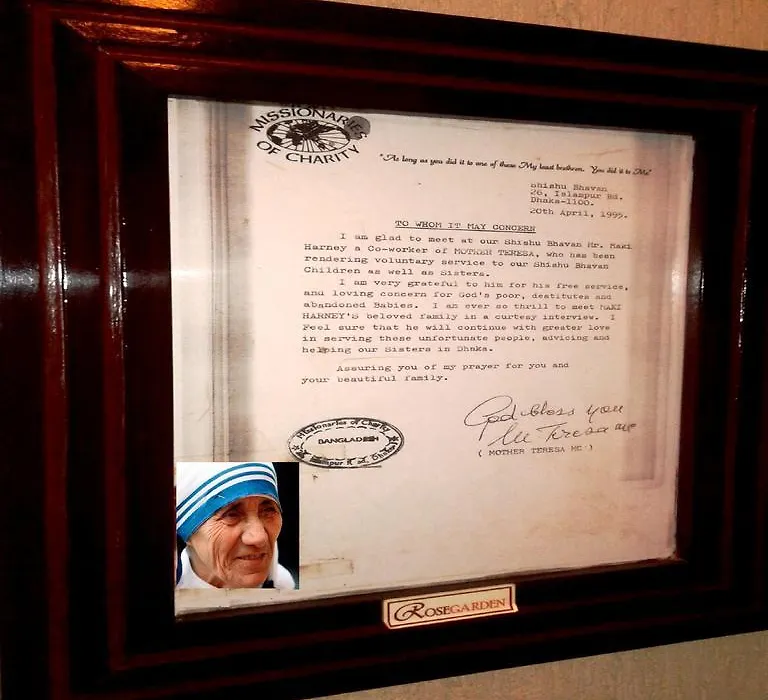 MISSIONARIES
OF CHARITY
"As long as you did it to one of these My least brethren. You did it to Me"
Shishu Bhavan
26, Islampur Rd.
Dhaka-1100.
20th April, 1995.
TO WHOM IT MAY CONCERN
I am glad to meet at our Shishu Bhavan Mr. Maki
Harney a Co-worker of MOTHER TERESA, who has been
rendering voluntary service to our Shishu Bhavan
Children as well as Sisters.
I am very grateful to him for his free service,
and loving concern for God's poor, destitutes and
abandoned Babies. I am ever so thrill to meet MAKI
HARNEY'S beloved family in a curtesy interview. I
Feel sure that he will continue with greater love
in serving these unfortunate people, advicing and
helping our Sisters in Dhaka.
Assuring you of my prayer for you and
your beautiful family.
God bless you
M Teresa mc
( MOTHER TERESA MC )
Missionaries of Charity
BANGLADESH
Islampur Rd. Dhaka
ROSEGARDEN